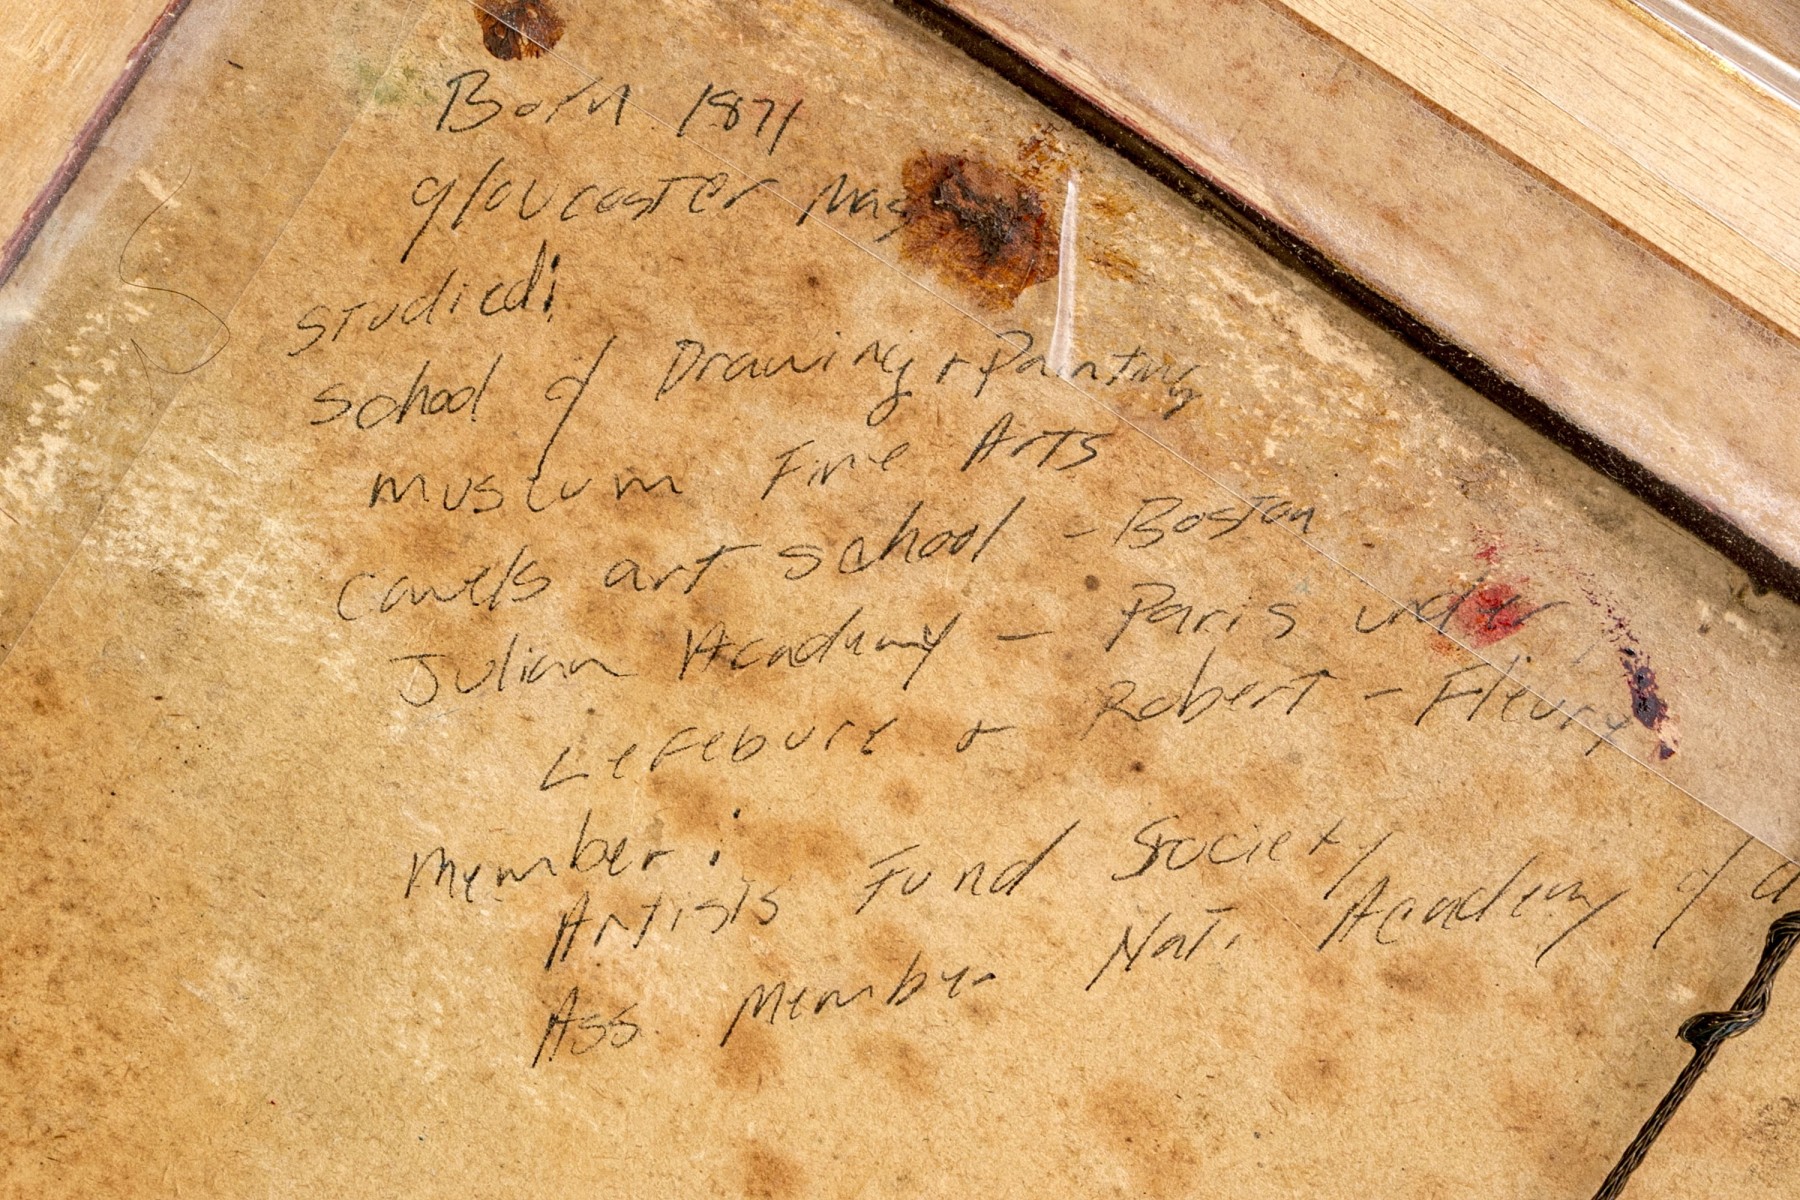 Born 1871
gloucaster Mas
studied:
school of Drawing + Painting
museum Fine Arts
cowels art school - Boston
Julian Academy - Paris under
Lefebure + Robert - Fleury
Member:
Artists Fund Society
Ass. Member Nat. Academy of d